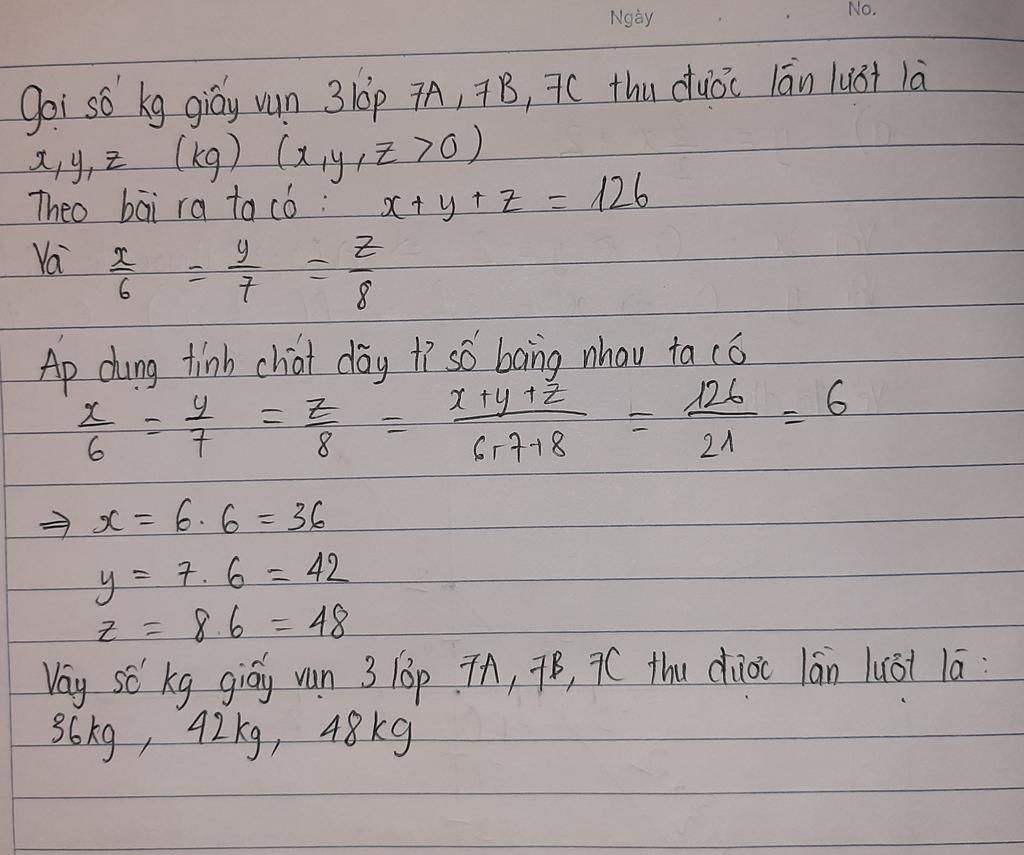 Ngày
No.
Gọi số kg giấy vụn 3 lớp 7A, 7B, 7C thu được lần lượt là
x, y, z (kg) (x, y, z > 0)
Theo bài ra ta có : x + y + z = 126
Và x/6 = y/7 = z/8
Áp dụng tính chất dãy tỉ số bằng nhau ta có
x/6 = y/7 = z/8 = (x + y + z)/(6+7+8) = 126/21 = 6
⇒ x = 6.6 = 36
y = 7.6 = 42
z = 8.6 = 48
Vậy số kg giấy vụn 3 lớp 7A, 7B, 7C thu được lần lượt là :
36kg, 42kg, 48kg